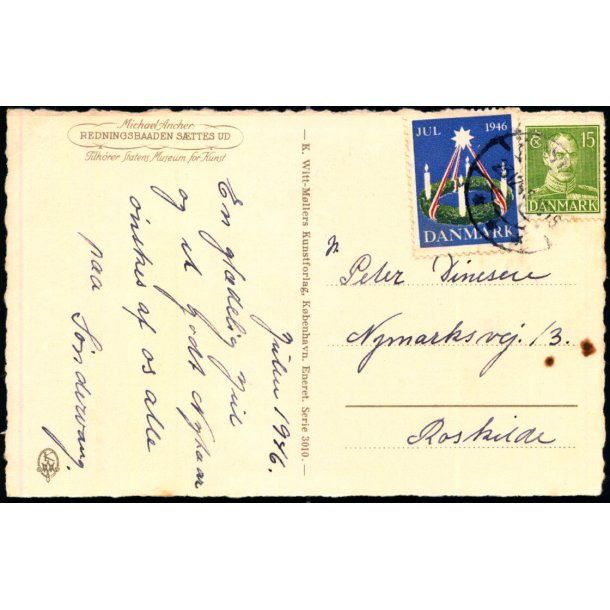 Michael Ancher
REDNINGSBAADEN SÆTTES UD
Tilhører Statens Museum for Kunst
Julen 1946.
En glædelig Jul
og et godt Nytaar
ønskes af os alle
paa Søndervang.
— K. Witt-Møllers Kunstforlag, København. Eneret. Serie 3010. —
JUL 1946
DANMARK
15
DANMARK
Peter Dinesen
Nymarksvej 13.
Roskilde